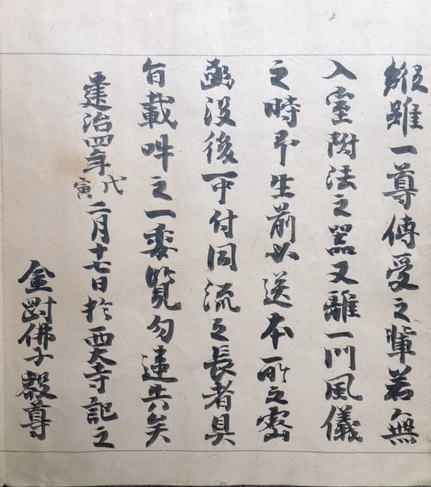 縱雖一尊傳受之輩若無
入室附法之器又離一門風儀
之時不生前必送本所之密
函没後可付同流之長者具
旨載叶之一委覧勿違失矣
建治四年戊寅二月十七日於西大寺記之
金剛佛子叡尊